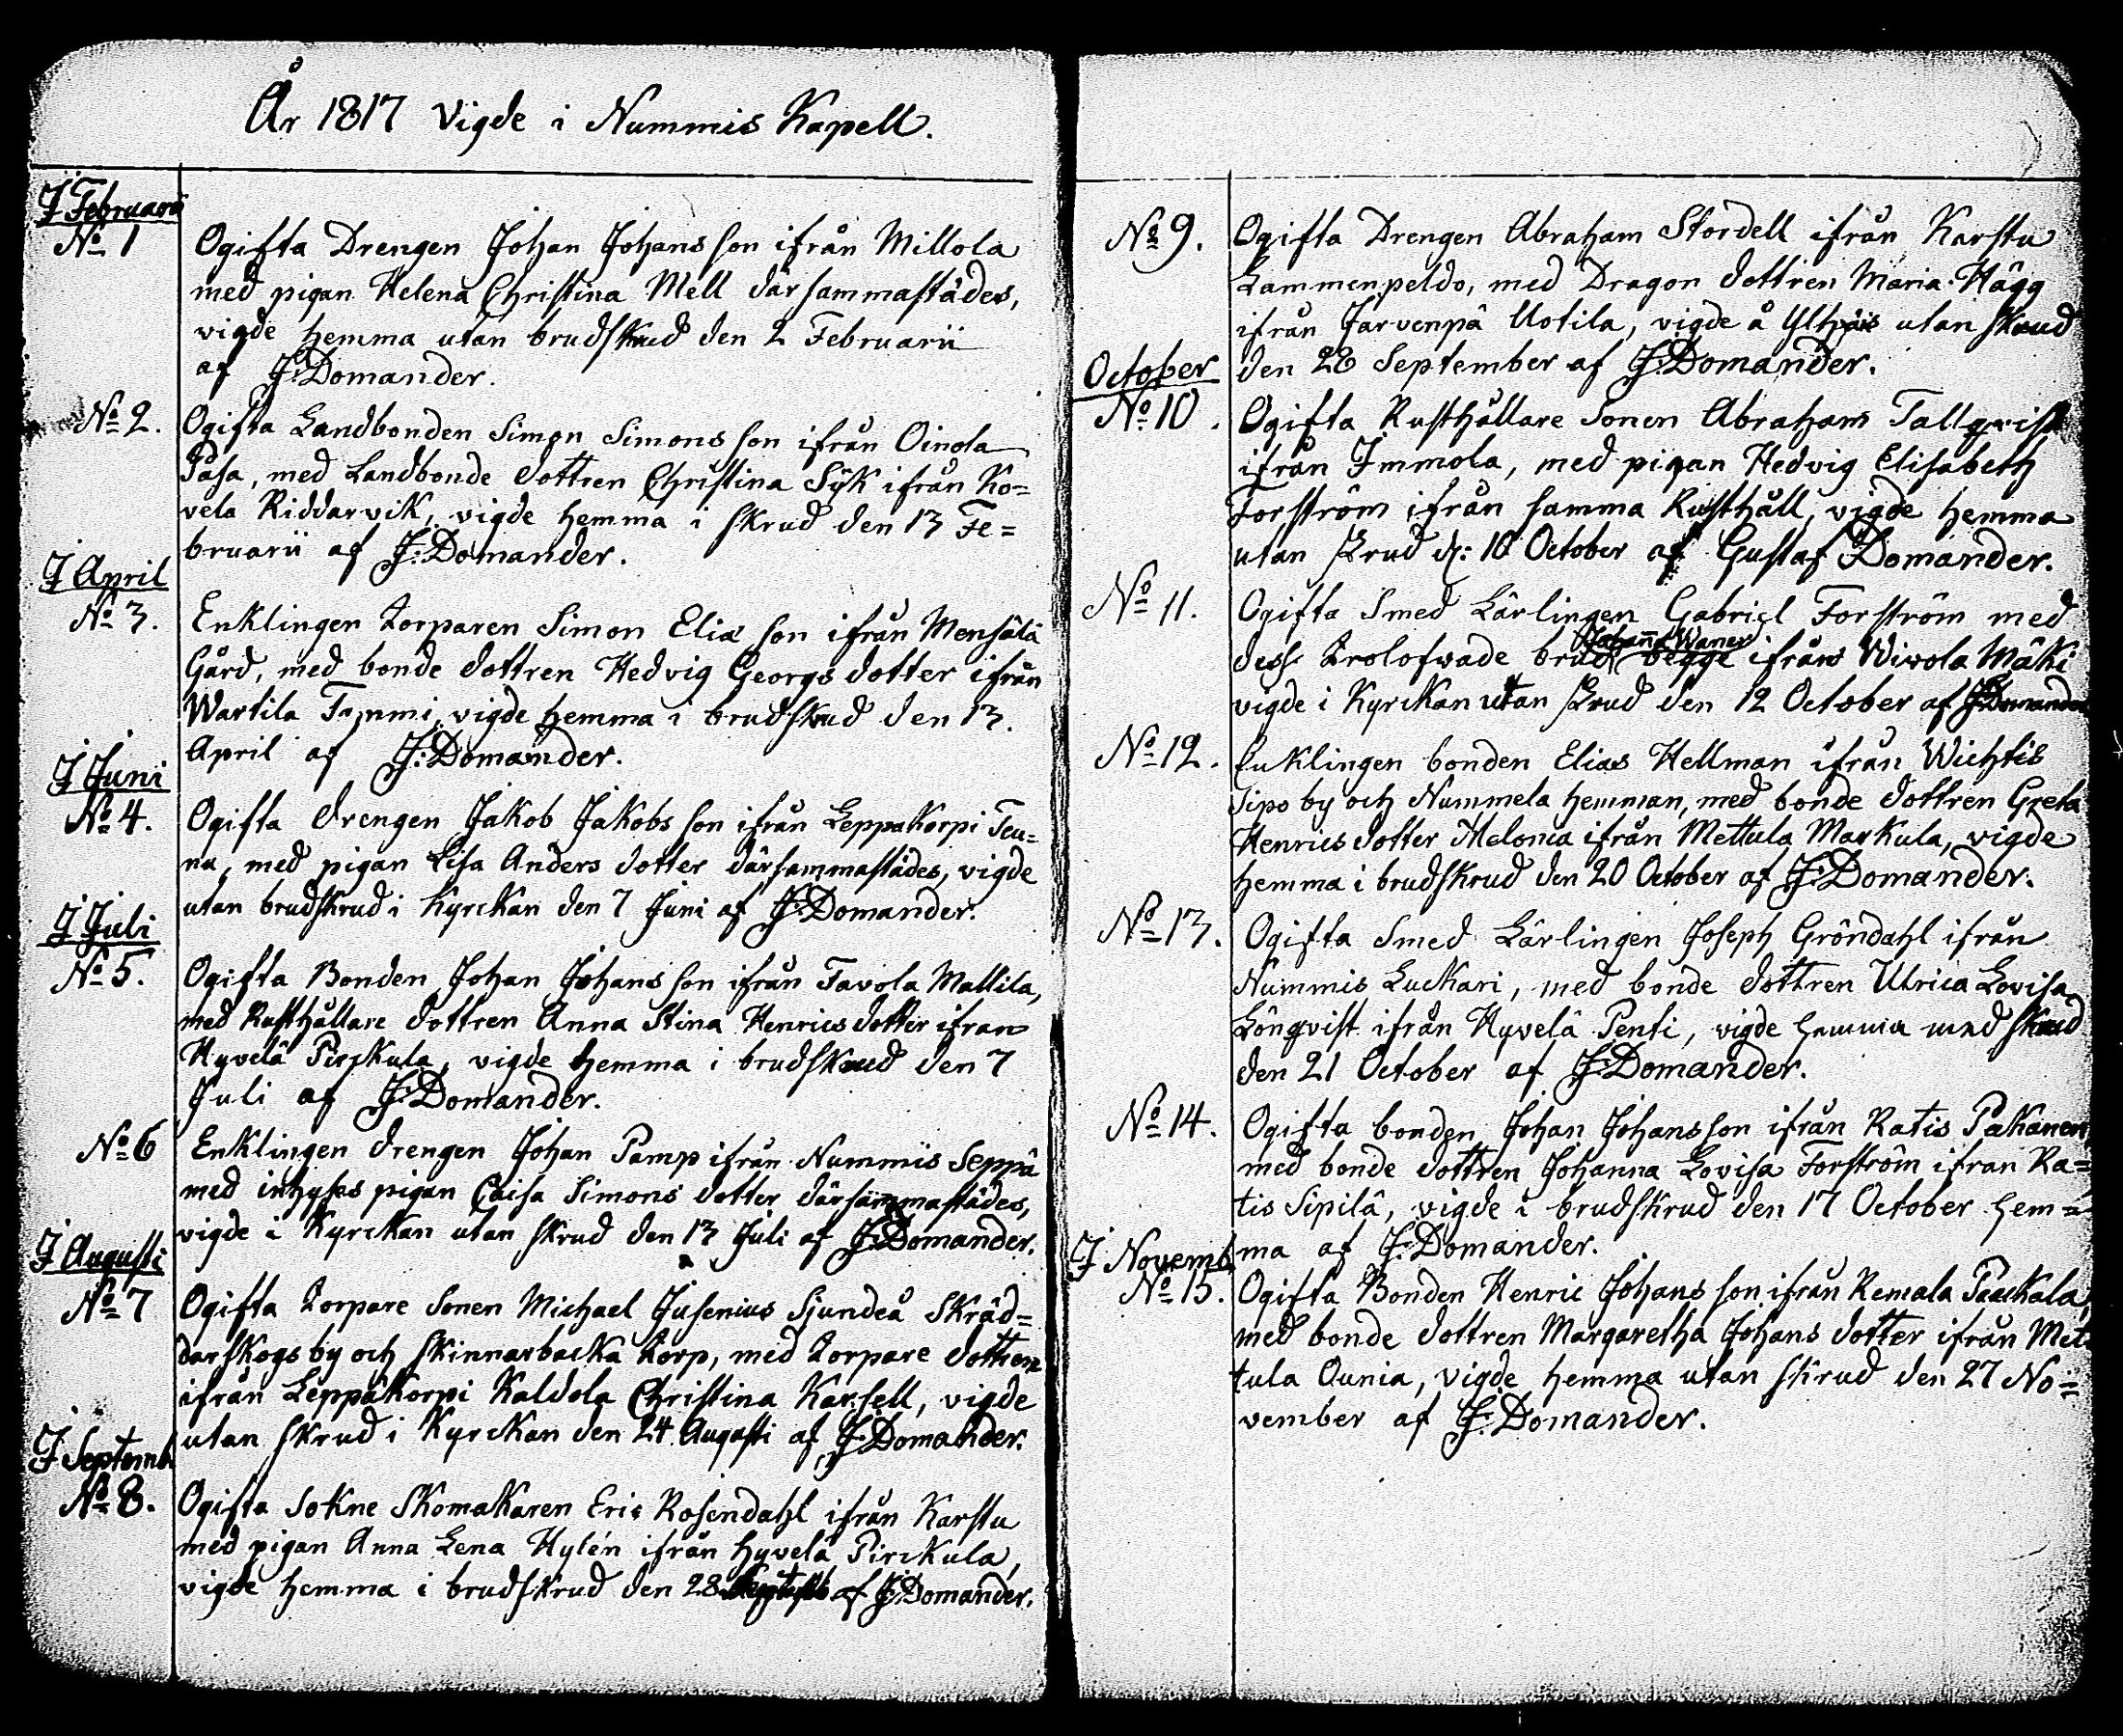 År 1817 Vigde i Nummis Kapell.
J Februarii
No 1 Ogifta Drengen Johan Johansson ifrån Millola
med pigan Helena Christina Mell därsammastädes,
vigde hemma utan brudskrud den 2 Februarii
af J:Domander.
No 2. Ogifta Landbonden Simon Simonsson ifrån Oinola
Pasa, med Landbonde dottren Christina Syk ifrån Ko=
vela Riddarvik, vigde hemma i skrud den 13 Fe=
bruarii af J:Domander.
J April
No 3. Enklingen Torparen Simon Elia son ifrån Mensälä
Gård, med bonde dottren Hedvig Georgs dotter ifrån
Wartila Tammi, vigde hemma i brudskrud den 13.
April af J:Domander.
J Juni
No 4. Ogifta drengen Jakob Jakobsson ifrån Leppäkorpi Teu=
nu, med pigan Lisa Anders dotter därsammastädes, vigde
utan brudskrud i Kyrckan den 7 Juni af J:Domander.
J Juli
No 5. Ogifta Bonden Johan Johansson ifrån Tavola Mattila,
med Rusthållare dottren Anna Stina Henrics dotter ifrån
Hyvelä Pirckula, vigde hemma i brudskrud den 7
Juli af J:Domander.
No 6 Enklingen drengen Johan Pamp ifrån Nummis Seppä
med inhyses pigan Caisa Simons dotter därsammastädes,
vigde i Kyrckan utan skrud den 13 Juli af J:Domander.
J Augusti
No 7 Ogifta Torpare Sonen Michael Jusenius Sjundeå Skräd=
darskogs by och Skinnarbacka torp, med Torpare dottren
ifrån Leppäkorpi Kaldola Christina Karsell, vigde
utan skrud i Kyrckan den 24 Augusti af J:Domander.
J Septemb.
No 8. Ogifta Sokne Skomakaren Eric Rosendahl ifrån Karstu
med pigan Anna Lena Hylén ifrån Hyvelä Pirckula,
vigde hemma i brudskrud den 28 af J:Domander.
No 9. Ogifta Drengen Abraham Stordell ifrån Karstu
Lammenpeldo, med Dragon dottren Maria Hägg
ifrån Jarvenpä Uotila, vigde å utan skrud
den 28 September af J:Domander.
October
No 10. Ogifta Rusthållare Sonen Abraham Tallqvist
ifrån Immola, med pigan Hedvig Elisabeth
Forström ifrån samma Rusthåll, vigde hemma
utan skrud d: 10 October af Gustaf Domander.
No 11. Ogifta Smed Lärlingen Gabriel Forström med
Johanna Waner
dess Trolofwade brud begge ifrån Wivola Mäki
vigde i Kyrckan utan skrud den 12 October af J:Domander
No 12. Enklingen bonden Elias Hellman ifrån Wichtis
Sipo by och Nummela hemman, med bonde dottren Greta
Henrics dotter Melonia ifrån Mettula Markula, vigde
hemma i brudskrud den 20 October af J:Domander.
No 13. Ogifta Smed Lärlingen Joseph Gröndahl ifrån
Nummis Luckari, med bonde dottren Ulrica Lovisa
Lönqvist ifrån Hyvelä Penti, vigde hemma med skrud
den 21 October af J:Domander.
No 14. Ogifta bonden Johan Johansson ifrån Ratis Pakanen
med bonde dottren Johanna Lovisa Forström ifrån Ra=
tis Sipilä, vigde i brudskrud den 17 October hem=
ma af J:Domander.
J Novemb.
No 15. Ogifta Bonden Henric Johansson ifrån Remala Paackala,
med bonde dottren Margaretha Johans dotter ifrån Met
tula Ounia, vigde hemma utan skrud den 27 No=
vember af J:Domander.